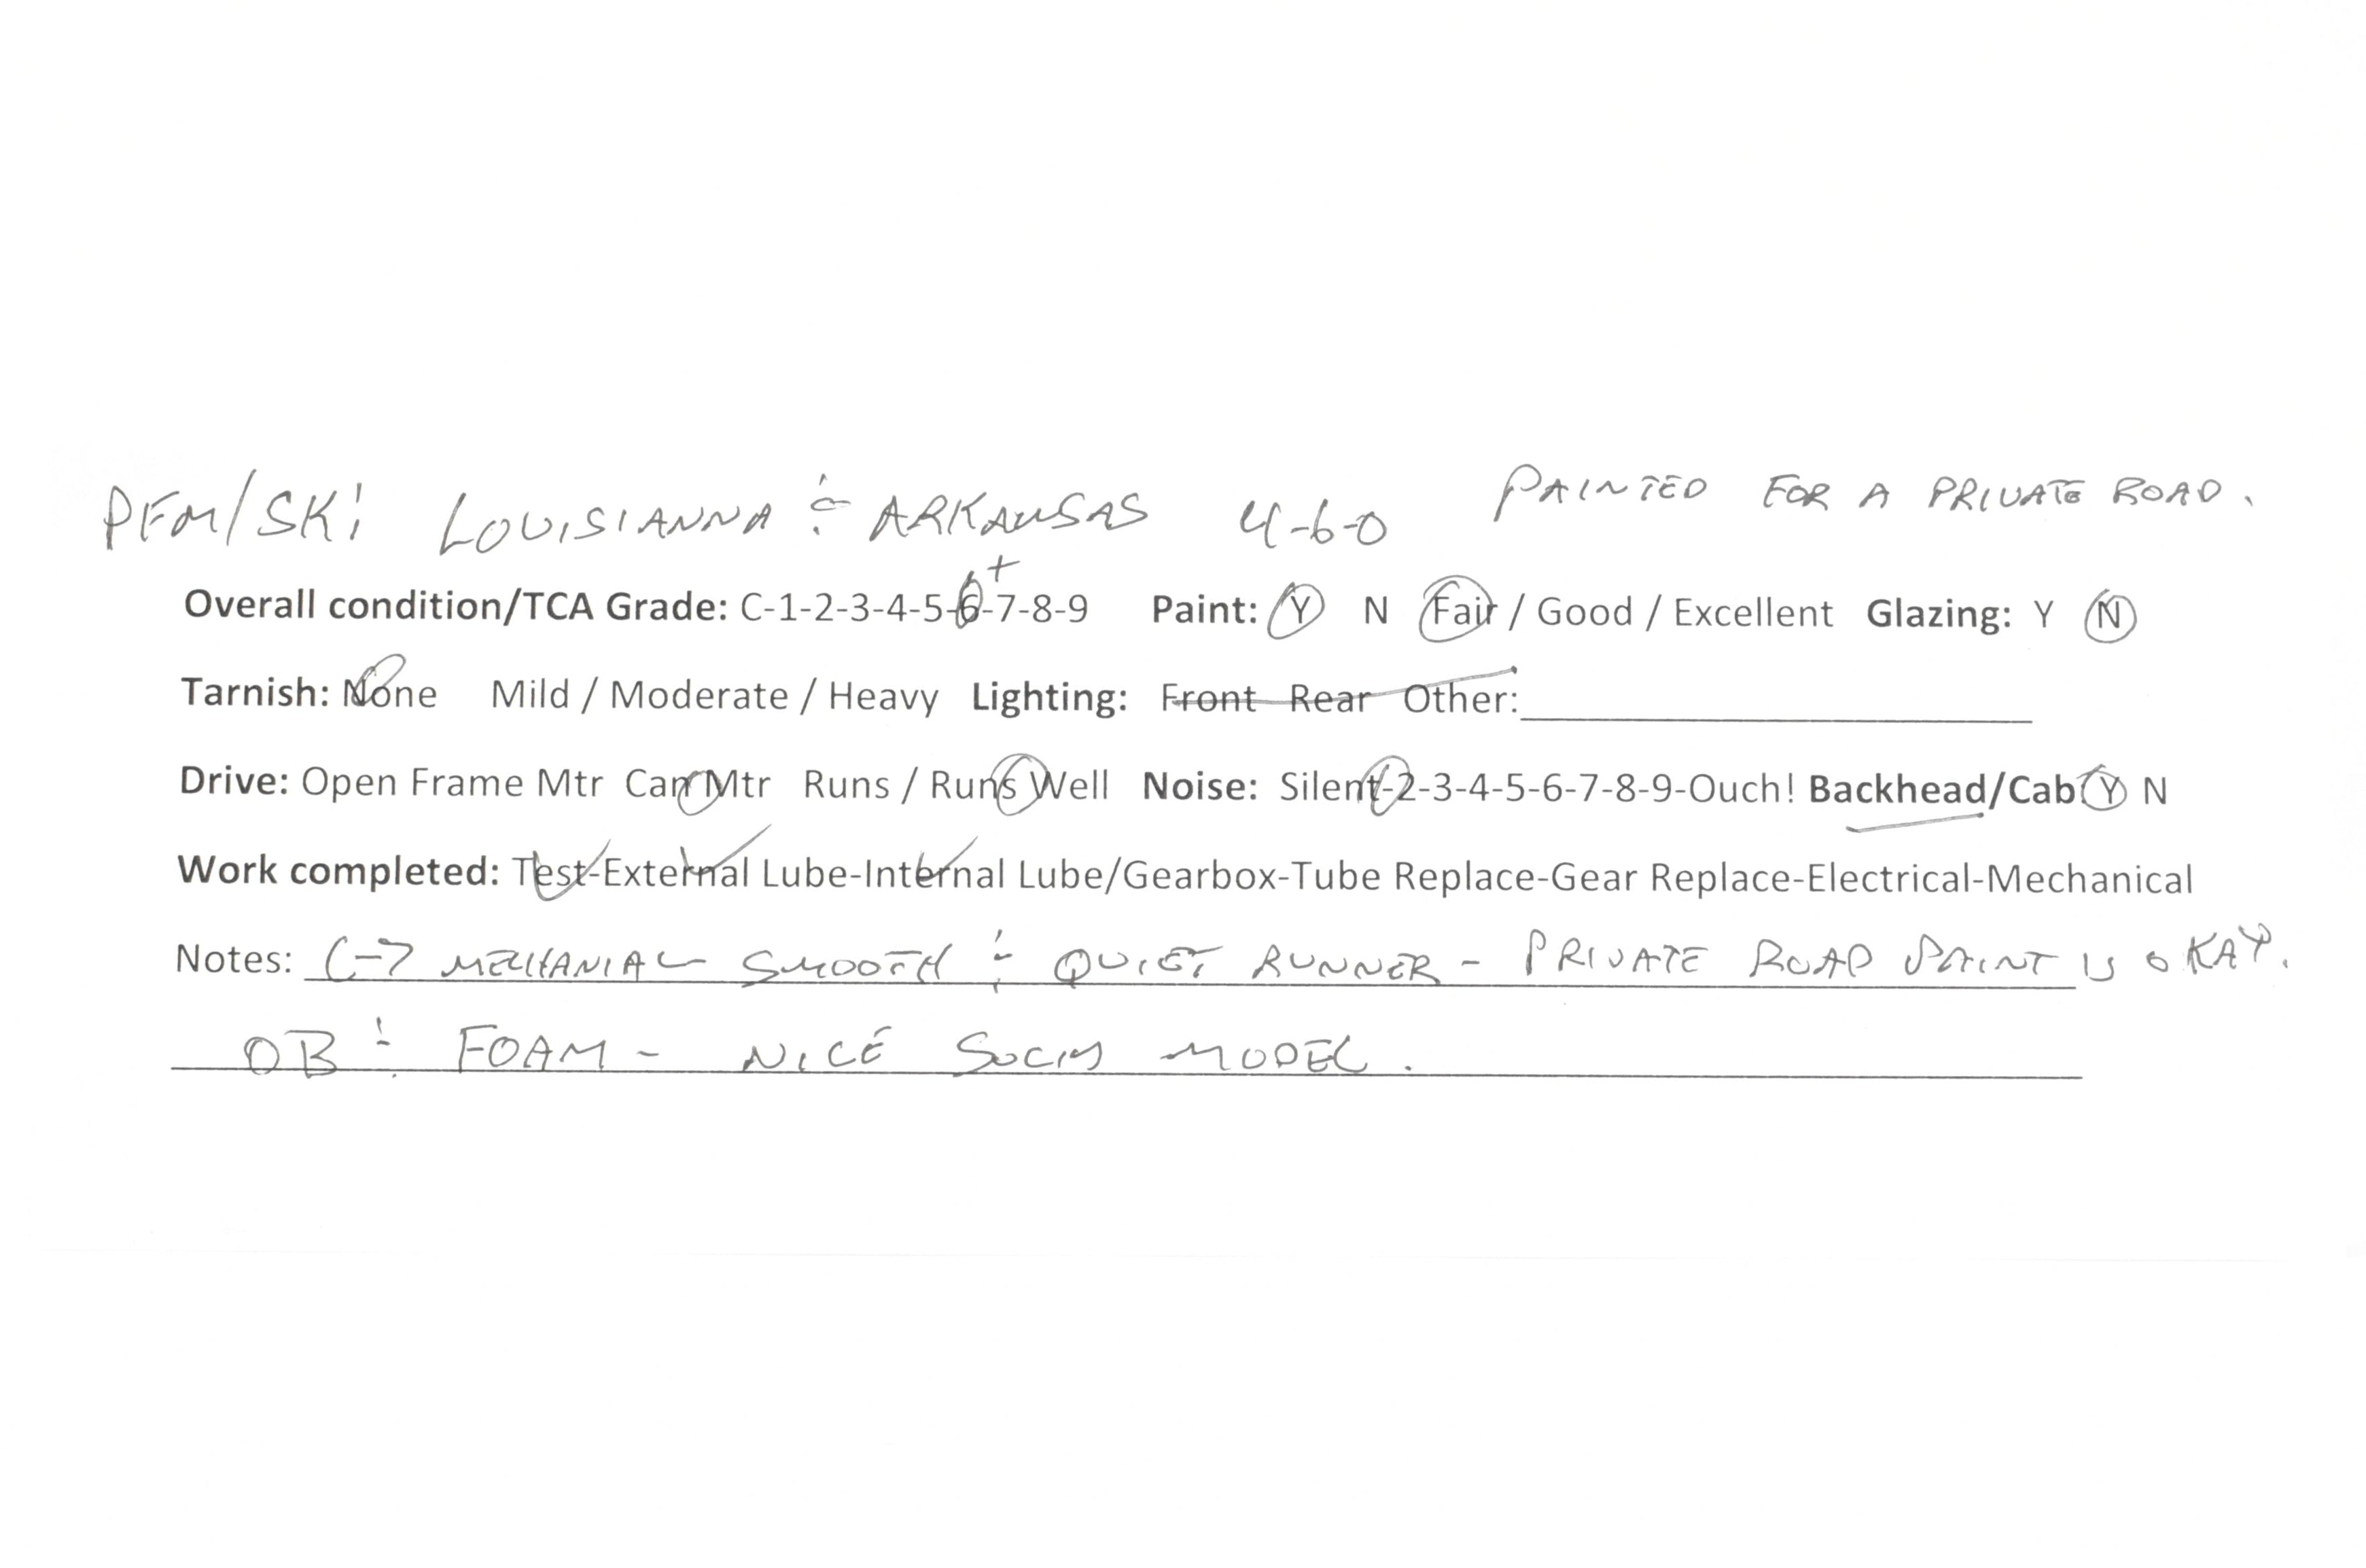 PFM/SKI LOUISIANNA & ARKANSAS 4-6-0 PAINTED FOR A PRIVATE ROAD.
+
Overall condition/TCA Grade: C-1-2-3-4-5-6-7-8-9 Paint: Y N Fair / Good / Excellent Glazing: Y N
Tarnish: None Mild / Moderate / Heavy Lighting: Front Rear Other:
Drive: Open Frame Mtr Can Mtr Runs / Runs Well Noise: Silent-2-3-4-5-6-7-8-9-Ouch! Backhead/Cab: Y N
Work completed: Test-External Lube-Internal Lube/Gearbox-Tube Replace-Gear Replace-Electrical-Mechanical
Notes: C-7 MECHANIAL SMOOTH & QUIET RUNNER - PRIVATE ROAD PAINT IS OKAY.
OB & FOAM - NICE MODEL.